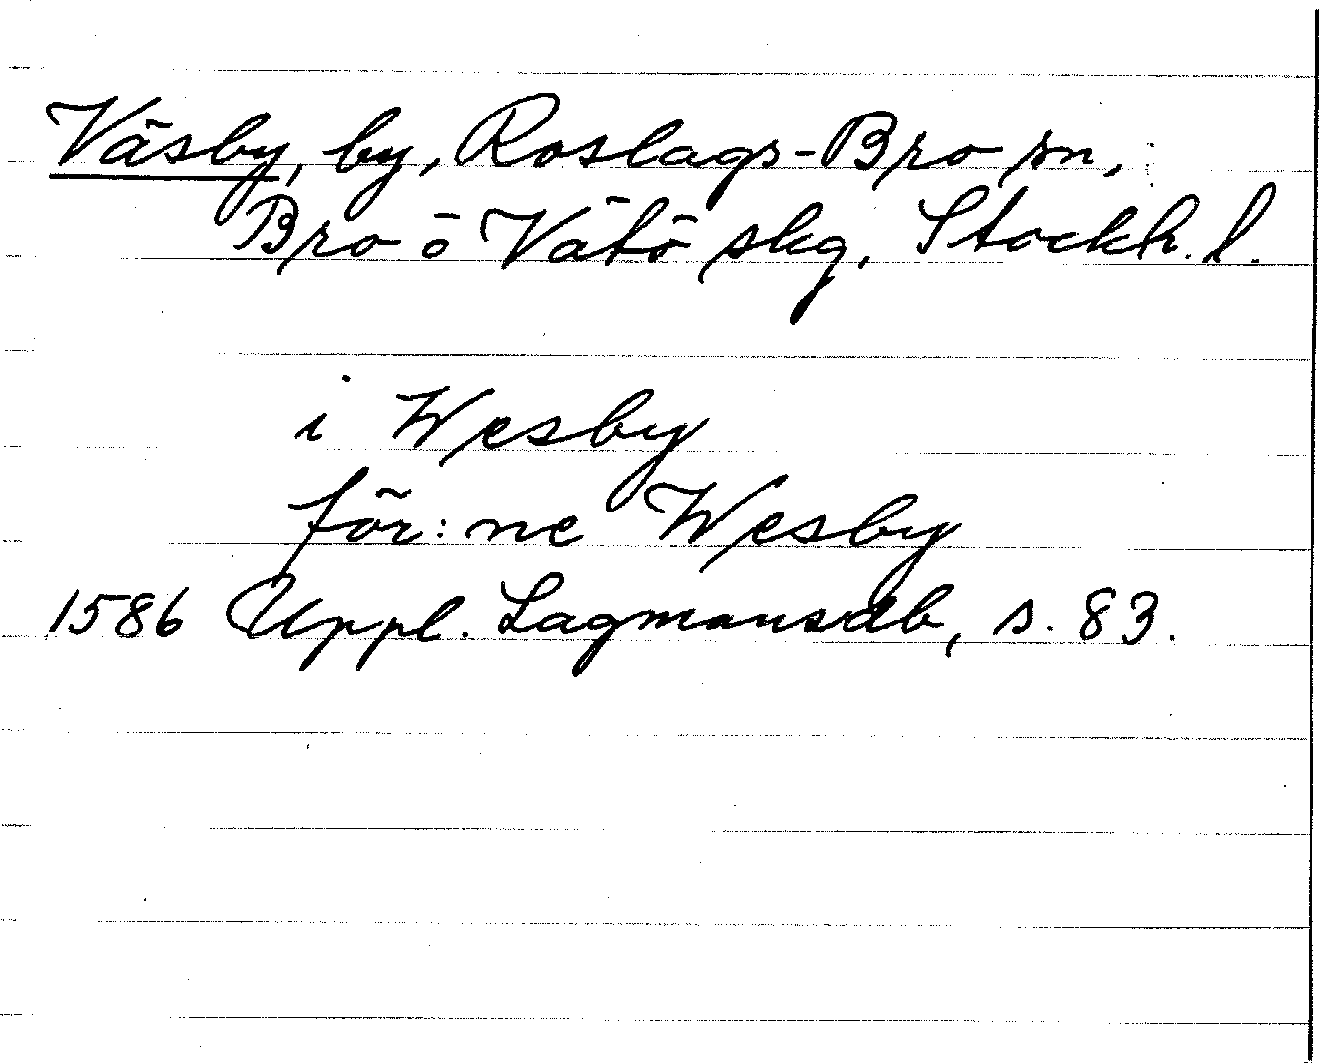 Väsby, by, Roslags-Bro sn,
Bro o Vätö skg, Stockh. l.
i Wesby
för:ne Wesby
1586 Uppl. Lagmansdb, s. 83.